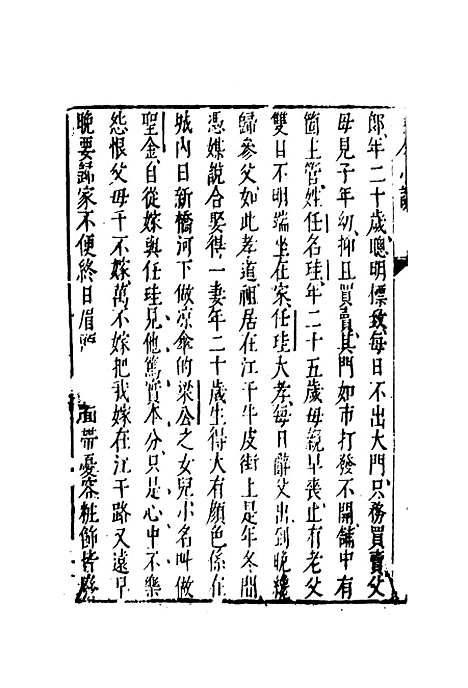 郎年二十歲聰明標致每日不出大門只務買賣父
母見子年幼抑且買賣其門如市打發不開舖中有
箇主管姓任名珪年二十五歲母親早喪止有老父
雙目不明端坐在家任珪大孝每日辭父出到晚纔
歸參父如此孝道祖居在江干牛皮街上是年冬間
憑媒說合娶得一妻年二十歲生得大有顏色係在
城內日新橋河下做凉傘的梁公之女兒小名叫做
聖金自從嫁與任珪見他篤實本分只是心中不樂
怨恨父母千不嫁萬不嫁把我嫁在江干路又遠早
晚要歸家不便終日眉 面帶憂容粧飾皆廢